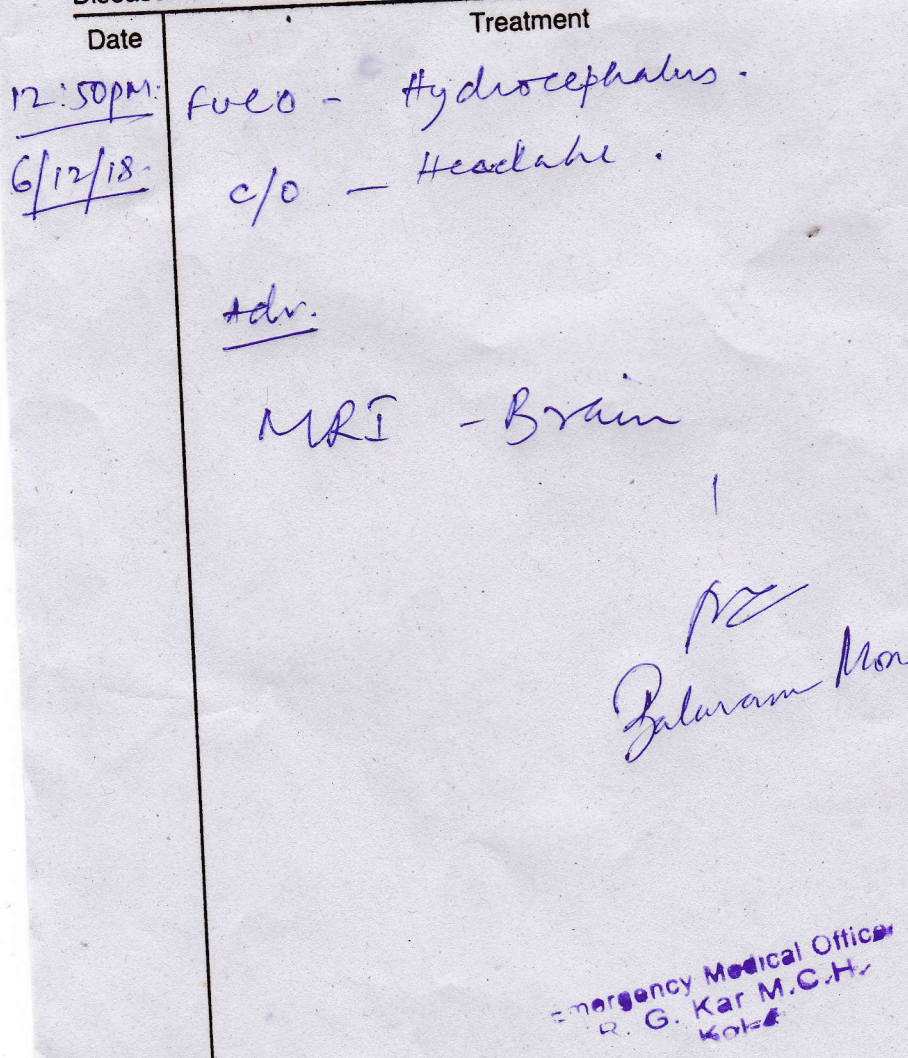 Date
Treatment
12:50pm.
FUCO - Hydrocephalus.
6/12/18.
c/o - Headache.
Adv.
MRI - Brain
Balaram Mon
Emergency Medical Officer
R. G. Kar M.C.H.
Kol-4